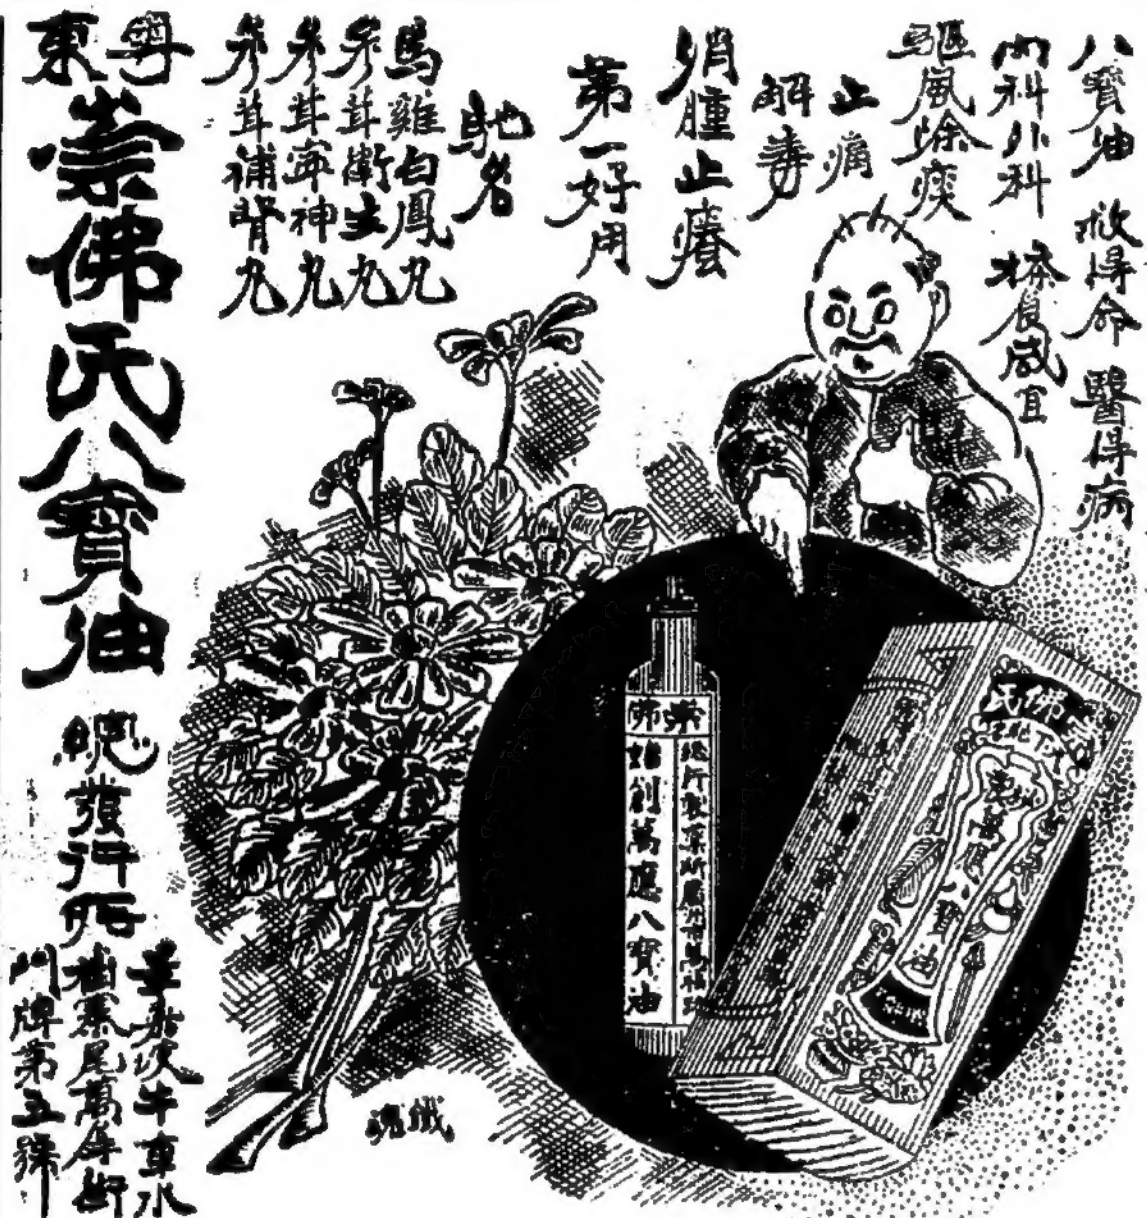 八寶油 救得命 醫得病
內科外科 搽食咸宜
驅風除痰
止痛
解毒
消腫止癢
第一好用
馳名
烏雞白鳳丸
參茸衛生丸
參茸寧神丸
參茸補腎丸
粵東
崇佛氏八寶油
總發行所
星架坡牛車水
尾萬
街
門牌第五號
崇佛
始創萬應八寶油
佛氏
萬應八寶油
鐵魂